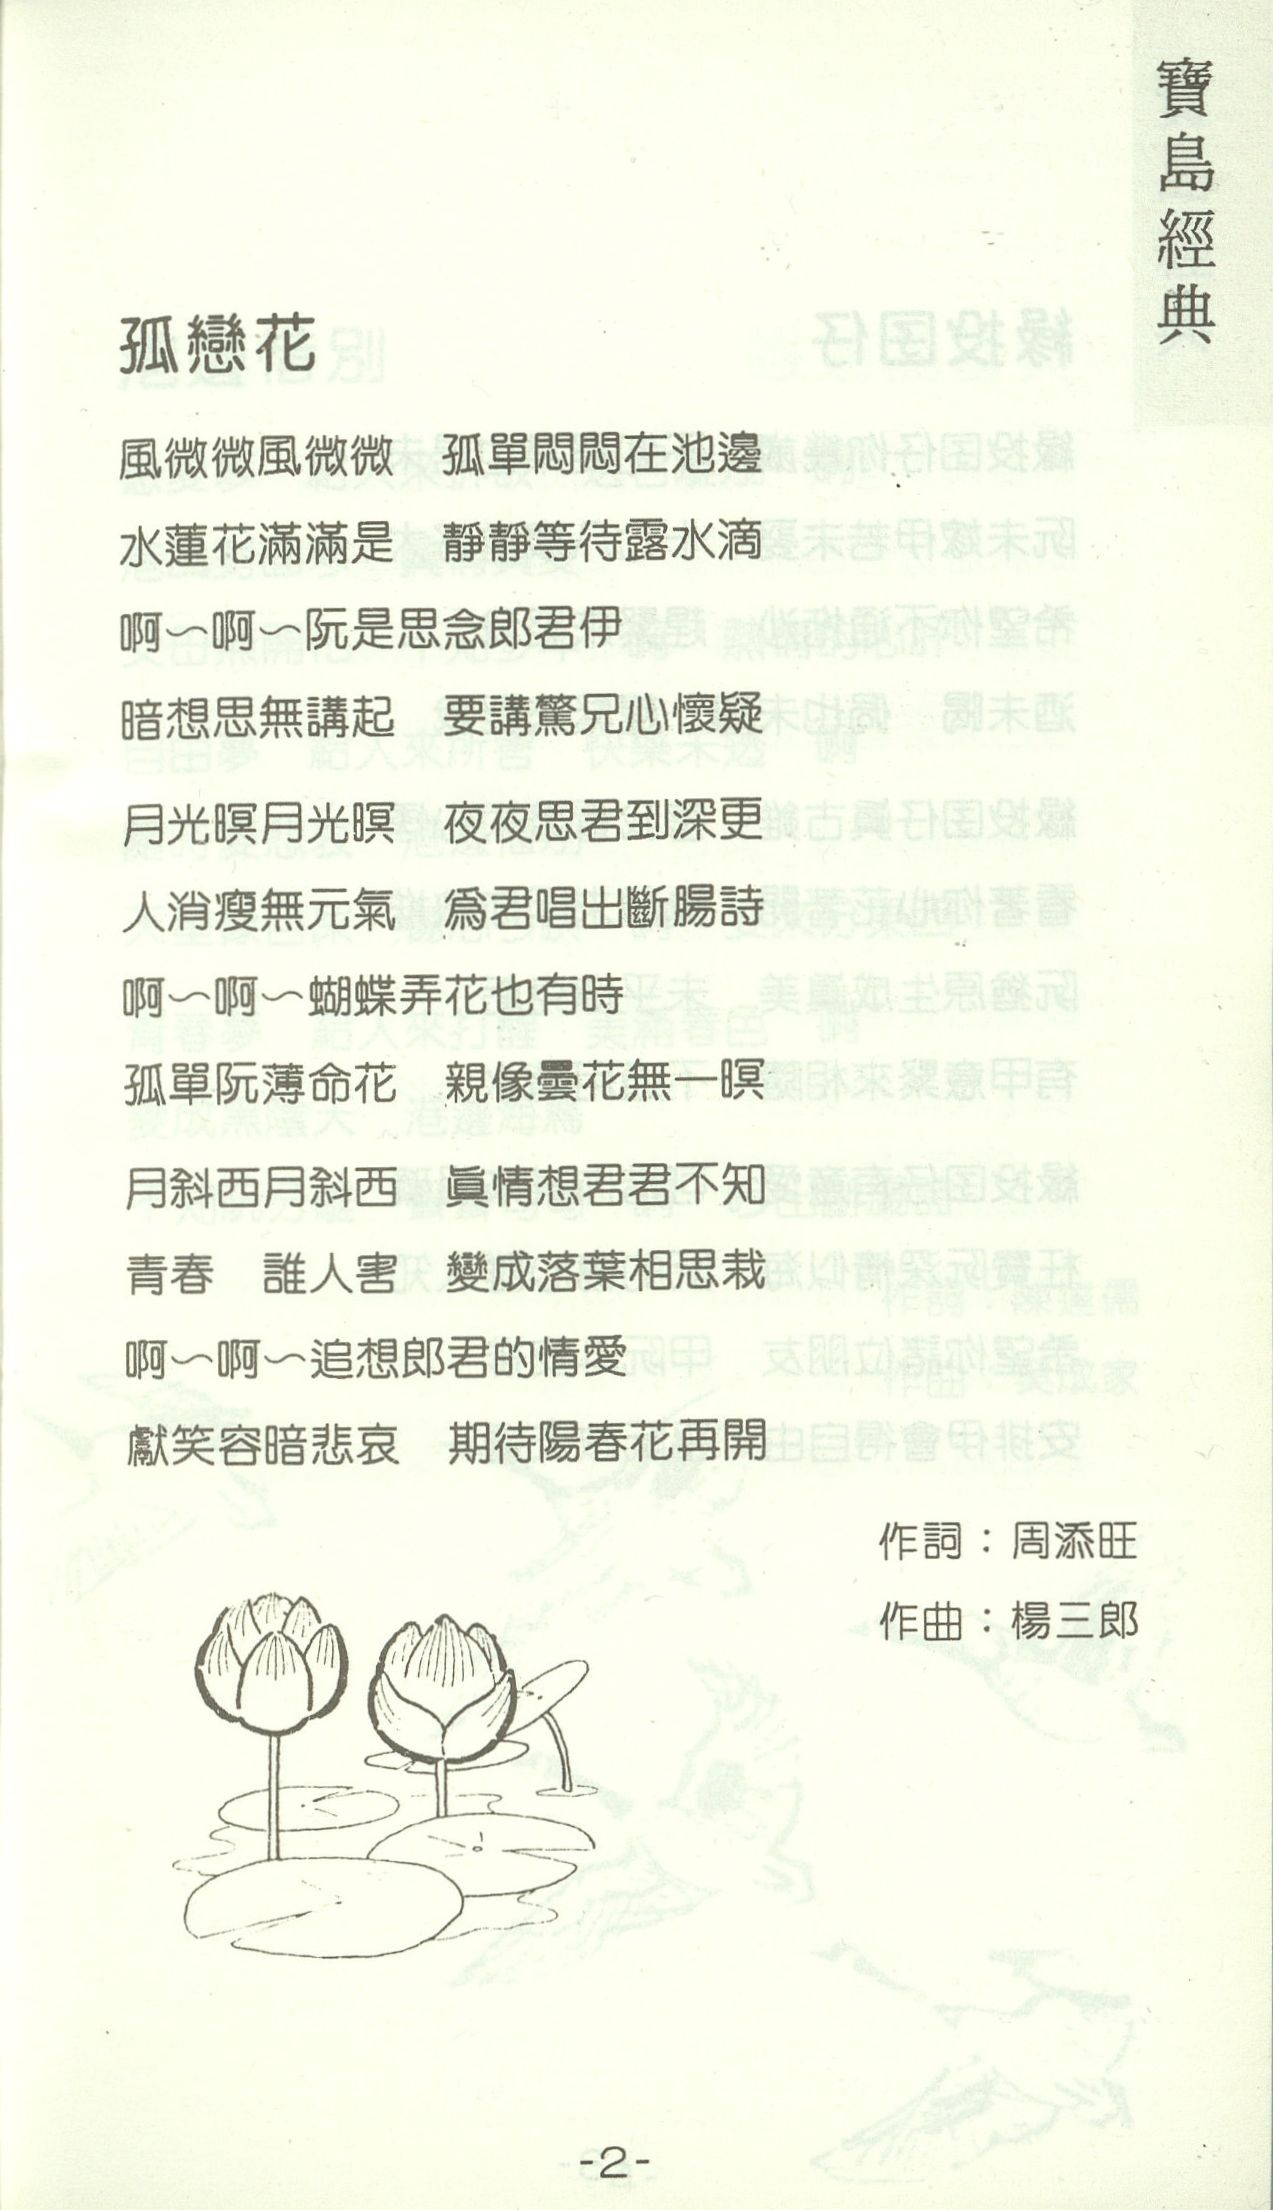 寶島經典
孤戀花
風微微風微微　孤單悶悶在池邊
水蓮花滿滿是　靜靜等待露水滴
啊～啊～阮是思念郎君伊
暗想思無講起　要講驚兄心懷疑
月光暝月光暝　夜夜思君到深更
人消瘦無元氣　爲君唱出斷腸詩
啊～啊～蝴蝶弄花也有時
孤單阮薄命花　親像曇花無一暝
月斜西月斜西　眞情想君君不知
青春　誰人害　變成落葉相思栽
啊～啊～追想郎君的情愛
獻笑容暗悲哀　期待陽春花再開
作詞：周添旺
作曲：楊三郎
-2-